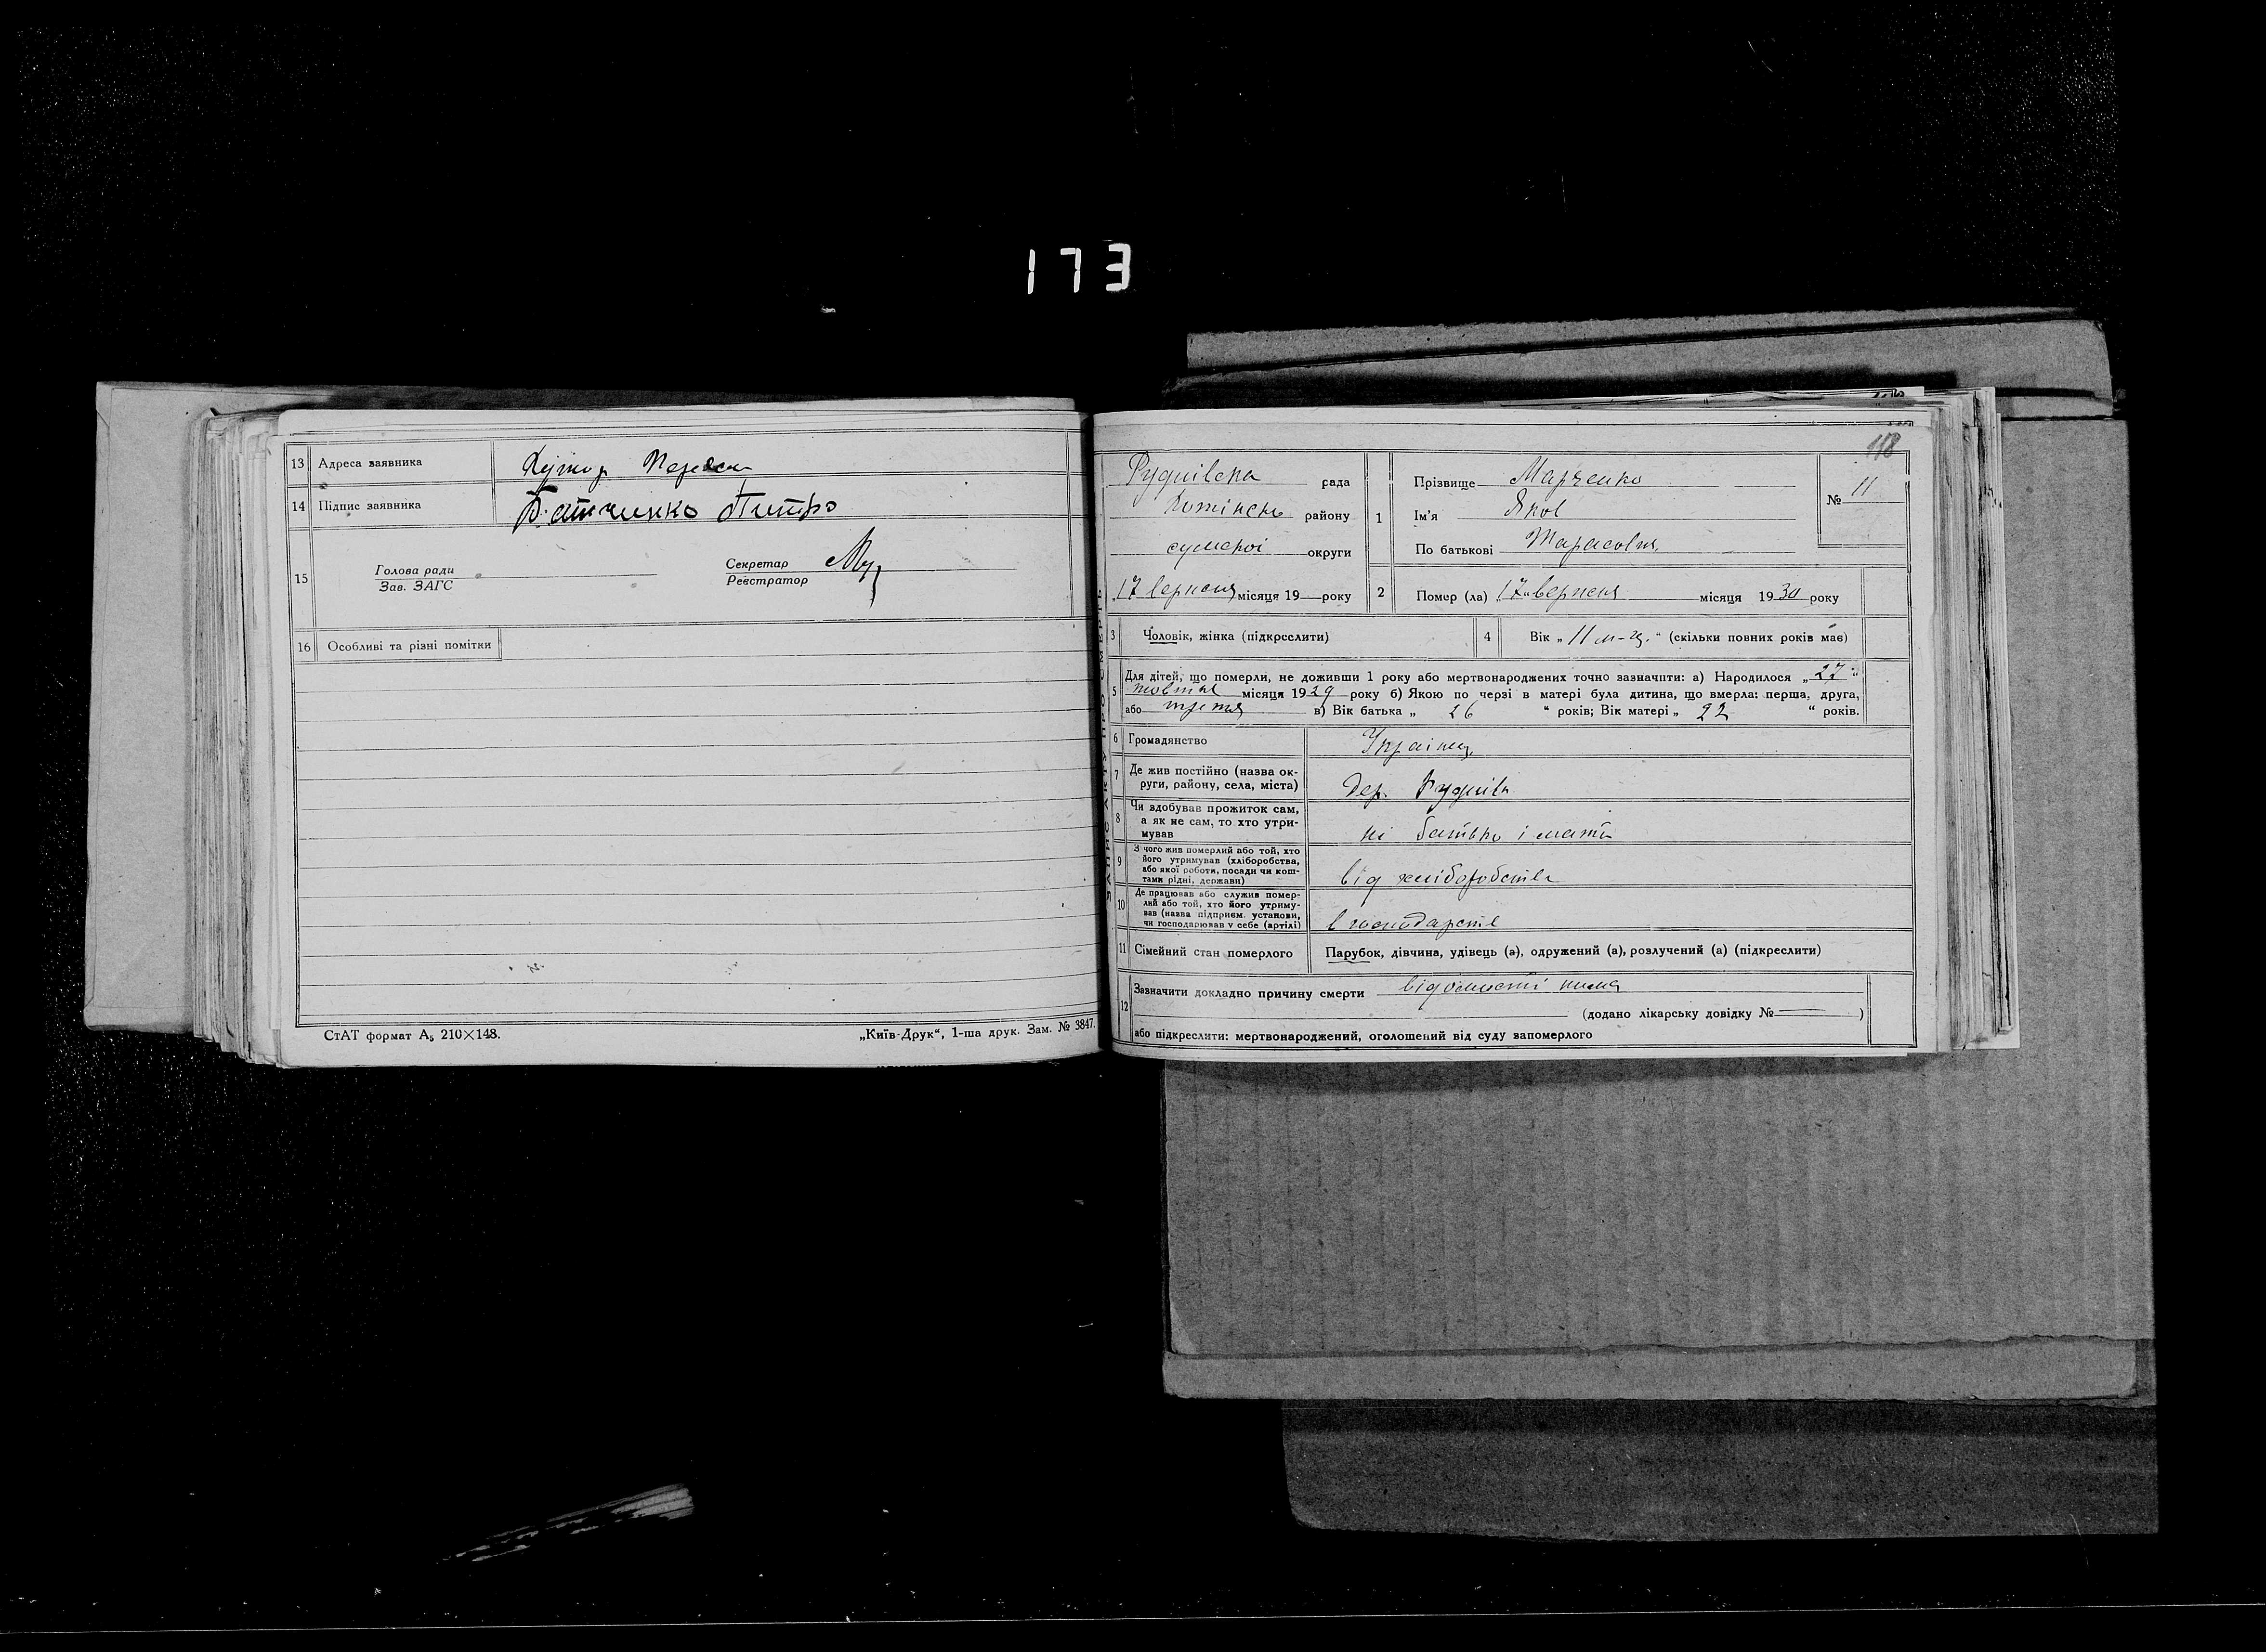 173
13 Адреса заявника Хутор
14 Підпис заявника Петро
15 Голова ради Секретар
Зав. ЗАГС Реєстратор
16 Особливі та різні помітки
СтАТ формат А₅ 210×148. „Київ-Друк“, 1-ша друк. Зам. № 3847.
118
Руднівска рада
Хотінсь району
сумської округи
„17 вересня місяця 19 — року
1 Прізвище Марченко
Ім'я Яков
По батькові Тарасович
№ 11
2 Помер (ла) „17“ вересня місяця 1930 року
3 Чоловік, жінка (підкреслити)
4 Вік „11 м-ц.“ (скільки повних років має)
5 Для дітей, що померли, не доживши 1 року або мертвонароджених точно зазначити: а) Народилося „27“
жовтня місяця 1929 року б) Якою по черзі в матері була дитина, що вмерла: перша, друга,
або третя в) Вік батька „ 26 “ років; Вік матері „ 22 “ років.
6 Громадянство Українц.
7 Де жив постійно (назва ок-
руги, району, села, міста) дер. Руднівк
8 Чи здобував прожиток сам,
а як не сам, то хто утри-
мував ні батько і мати
9 З чого жив померлий або той, хто
його утримував (хліборобства,
або якої роботи, посади чи кош-
тами рідні, держави) від хліборобства
10 Де працював або служив помер-
лий або той, хто його утриму-
вав (назва підприєм. установи,
чи господарював у себе (артілі) в господарстві
11 Сімейний стан померлого Парубок, дівчина, удівець (а), одружений (а), розлучений (а) (підкреслити)
12 Зазначити докладно причину смерти відомості нима
(додано лікарську довідку № — )
або підкреслити: мертвонароджений, оголошений від суду запомерлого